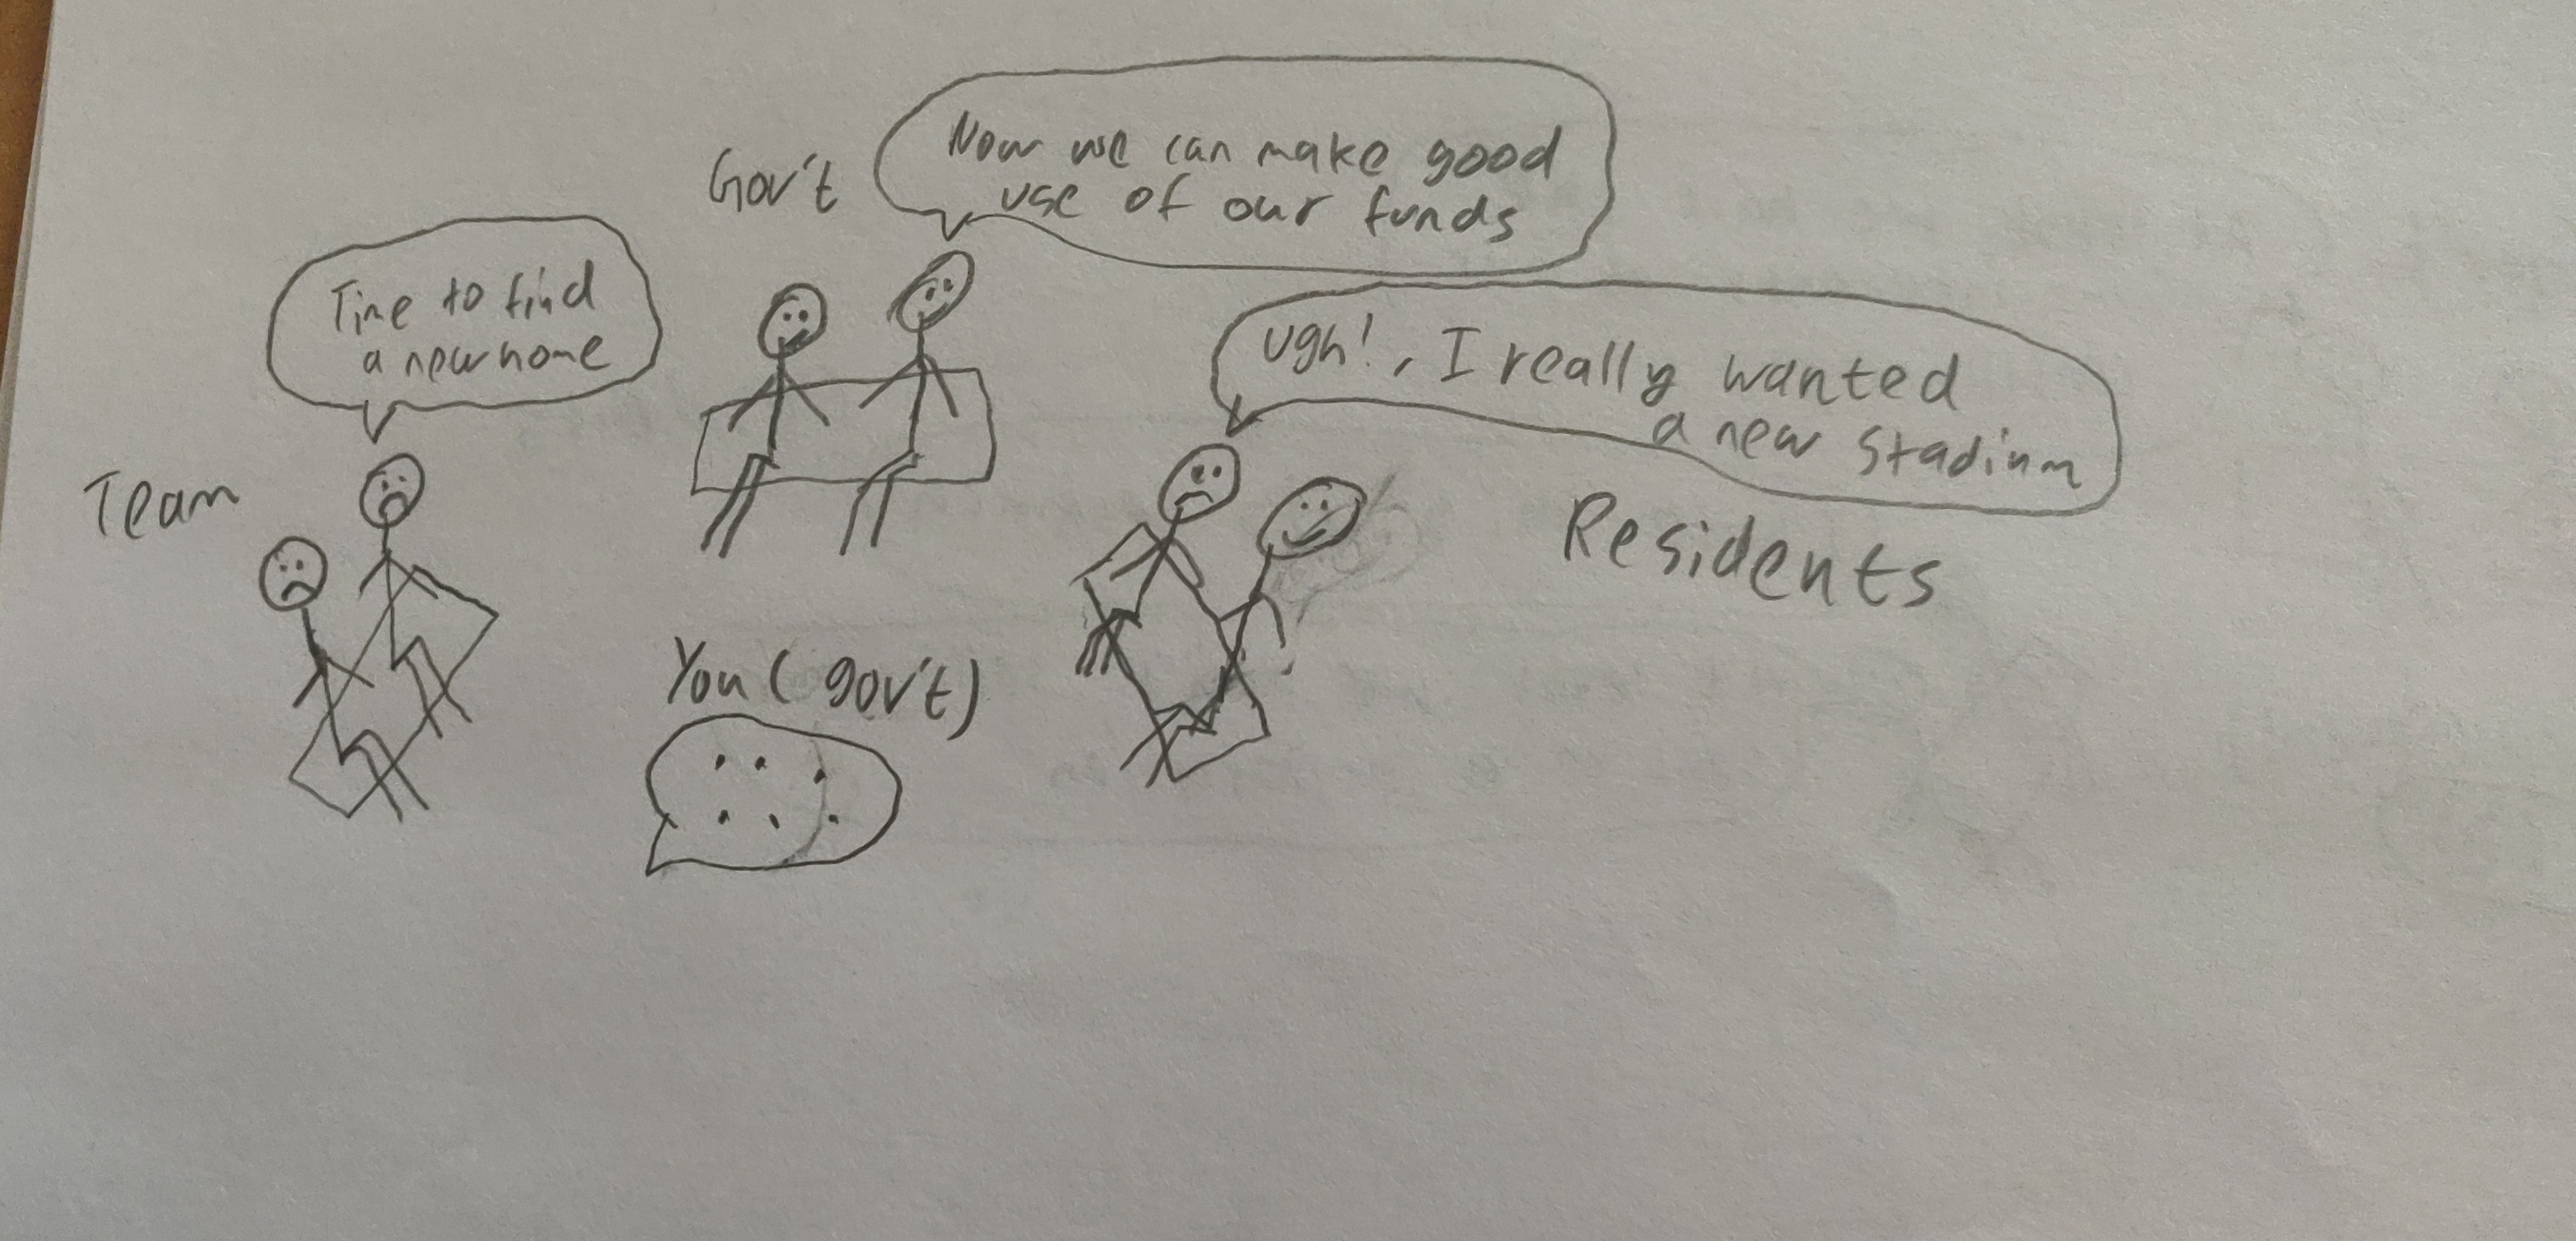 Gov't
Now we can make good
use of our funds
Time to find
a new home
ugh!, I really wanted
a new stadium
Team
Residents
You (gov't)